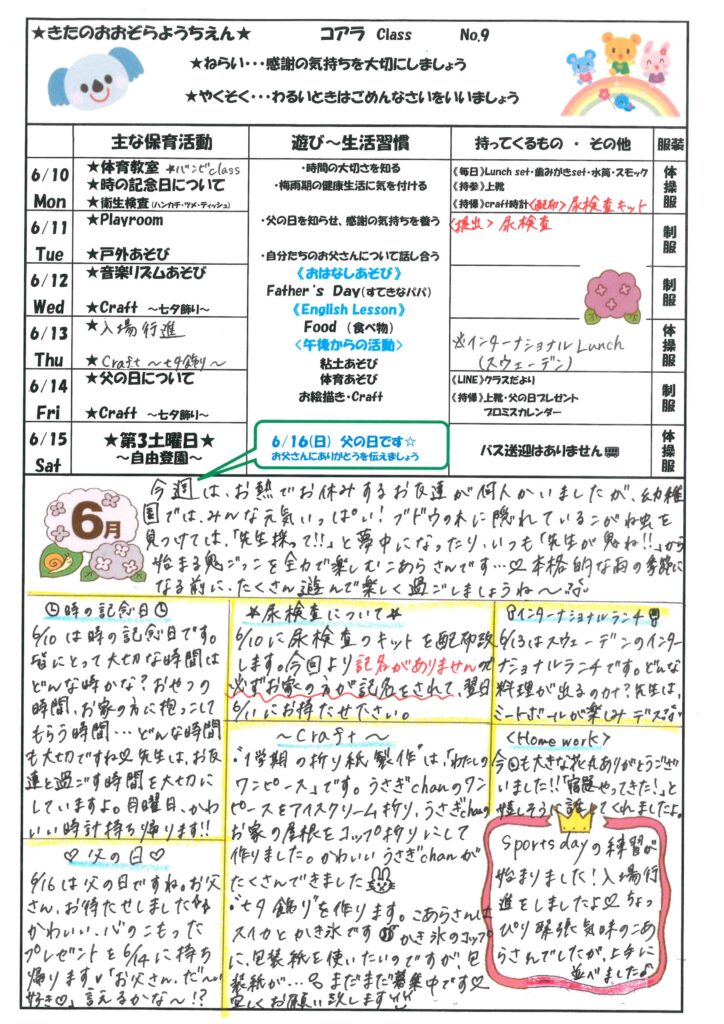 ★きたのおおぞらようちえん★ コアラ Class No.9
★ねらい・・・感謝の気持ちを大切にしましょう
★やくそく・・・わるいときはごめんなさいをいいましょう
主な保育活動 遊び～生活習慣 持ってくるもの・その他 服装
6/10 Mon
★体育教室 *バンビclass
★時の記念日について
★衛生検査(ハンカチ・ツメ・ティッシュ)
・時間の大切さを知る
・梅雨期の健康生活に気を付ける
《毎日》Lunch set・歯みがきset・水筒・スモック
《持参》上靴
《持帰》craft時計 〈配布〉尿検査キット
体操服
6/11 Tue
★Playroom
★戸外あそび
・父の日を知らせ、感謝の気持ちを養う
・自分たちのお父さんについて話し合う
〈提出〉尿検査
制服
6/12 Wed
★音楽リズムあそび
★Craft ～七夕飾り～
《おはなしあそび》
Father's Day(すてきなパパ)
《English Lesson》
制服
6/13 Thu
★入場行進
★Craft ～七夕飾り～
Food （食べ物）
〈午後からの活動〉
粘土あそび
※インターナショナルLunch
(スウェーデン)
体操服
6/14 Fri
★父の日について
★Craft ～七夕飾り～
体育あそび
お絵描き・Craft
《LINE》クラスだより
《持帰》上靴・父の日プレゼント
プロミスカレンダー
制服
6/15 Sat
★第3土曜日★
～自由登園～
6/16(日) 父の日です☆
お父さんにありがとうを伝えましょう
バス送迎はありません
体操服
6月
今週は、お熱でお休みするお友達が何人かいましたが、幼稚
園では、みんな元気いっぱい！ブドウの木に隠れているこがね虫を
見つけては、「先生採って!!」と夢中になったり、いつも「先生が鬼ね!!」から
始まる鬼ごっこを全力で楽しむこあらさんです…♡本格的な雨の季節に
なる前に、たくさん遊んで楽しく過ごしましょうね～
時の記念日
6/10は時の記念日です。
皆にとって大切な時間は
どんな時かな？おやつの
時間、お家の方に抱っこして
もらう時間…どんな時間
も大切ですね♡先生は、お友
達と過ごす時間を大切に
していますよ。月曜日、かわ
いい時計持ち帰ります!!
♡父の日♡
6/16は父の日ですね。お父
さん、お待たせしました
かわいい、心のこもった
プレゼントを6/14に持ち
帰ります♡「お父さん、だ～い
好き♡」言えるかな～!?
*尿検査について*
6/10に尿検査のキットを配布致
します。今回より記名がありませんので
必ずお家の方が記名をされて、翌日
6/11にお持たせ下さい。
～Craft～
"1学期の折り紙製作"は、「わたしの
ワンピース」です。うさぎchanのワン
ピースをアイスクリーム折り、うさぎchanの
お家の屋根をコップ折りにして
作りました。かわいいうさぎchanが
たくさんできました
"七夕飾り"を作ります。こあらさんは
スイカとかき氷です かき氷のコップ
に、包装紙を使いたいのですが、包
装紙が…。まだまだ募集中です♡
宜しくお願い致します
インターナショナルランチ
6/13はスウェーデンのインター
ナショナルランチです。どんな
料理が出るのかな？先生は、
ミートボールが楽しみデス
<Home work>
今回も大きな花丸ありがとうござ
いました!!「宿題やってきた！」と
嬉しそうに話してくれましたよ。
Sports dayの練習が
始まりました！入場行
進をしましたよ♡ちょっ
ぴり緊張気味のこあ
らさんでしたが、上手に
並べました♪